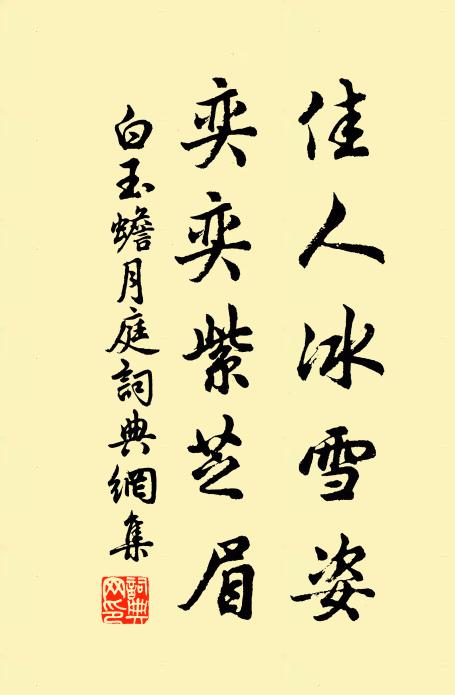 佳人冰雪姿
奕奕紫芝眉
白玉蟾月庭詞典網集
詞典網印